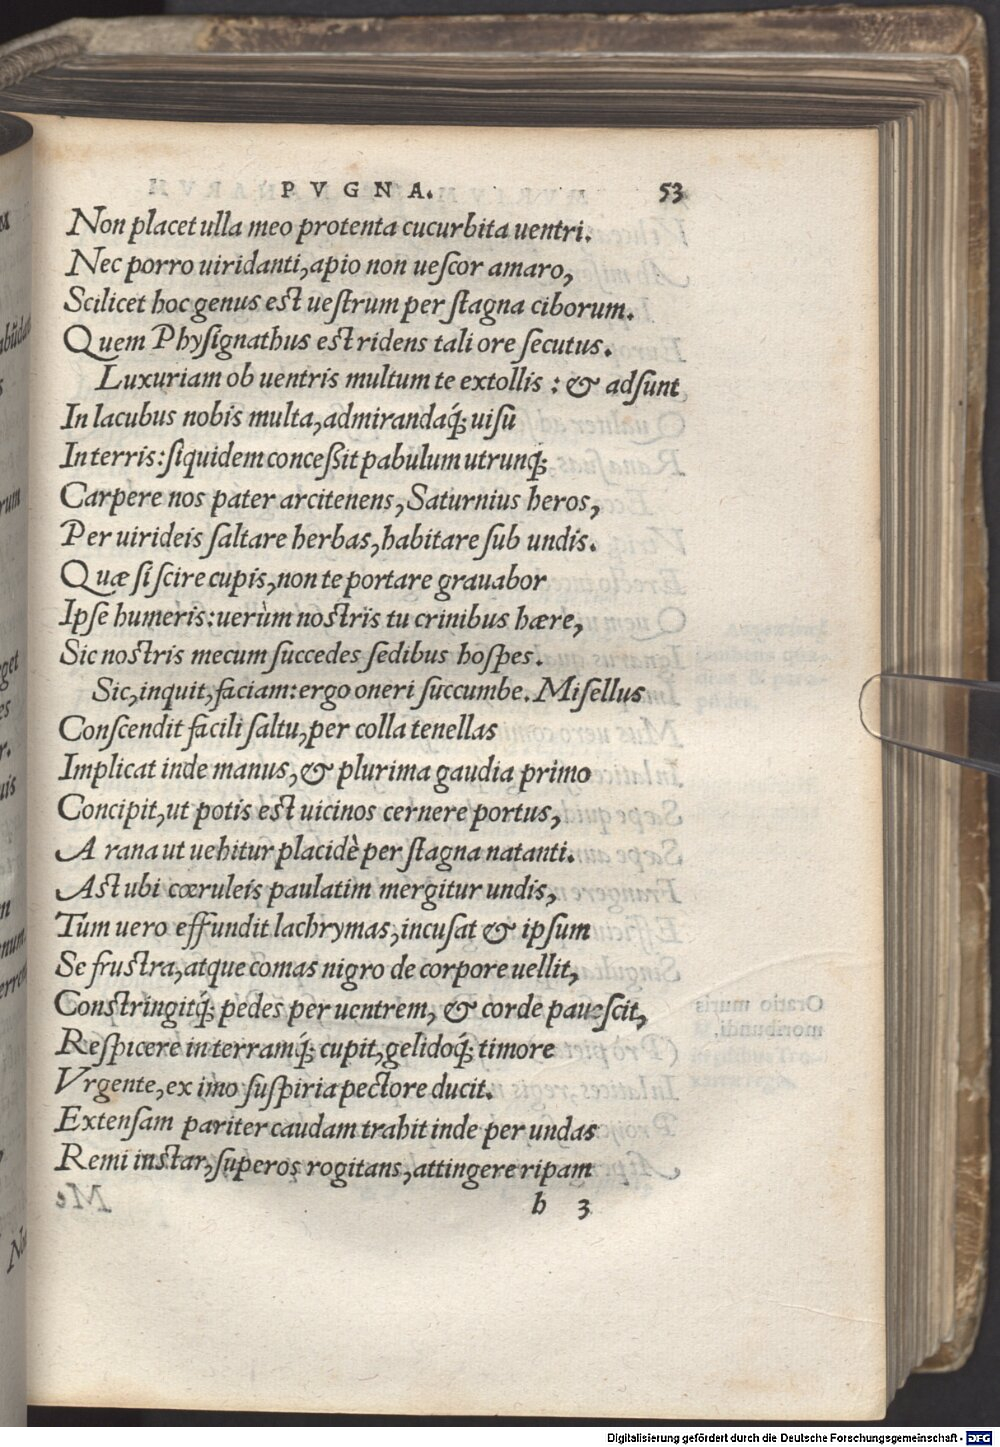 PVGNA. 53
Non placet ulla meo protenta cucurbita uentri.
Nec porro uiridanti, apio non uescor amaro,
Scilicet hoc genus est uestrum per stagna ciborum.
Quem Physignathus est ridens tali ore secutus.
Luxuriam ob uentris multum te extollis : & adsunt
In lacubus nobis multa, admirandaq́; uisu
In terris: siquidem concessit pabulum utrunq;
Carpere nos pater arcitenens, Saturnius heros,
Per uirideis saltare herbas, habitare sub undis.
Quæ si scire cupis, non te portare grauabor
Ipse humeris: uerùm nostris tu crinibus hære,
Sic nostris mecum succedes sedibus hospes.
Sic, inquit, faciam: ergo oneri succumbe. Misellus
Conscendit facili saltu, per colla tenellas
Implicat inde manus, & plurima gaudia primo
Concipit, ut potis est uicinos cernere portus,
A rana ut uehitur placidè per stagna natanti.
Ast ubi cœruleis paulatim mergitur undis,
Tum uero effundit lachrymas, incusat & ipsum
Se frustra, atque comas nigro de corpore uellit,
Constringitq́; pedes per uentrem, & corde pauescit,
Respicere in terramq́; cupit, gelidoq́; timore
Vrgente, ex imo suspiria pectore ducit.
Extensam pariter caudam trahit inde per undas
Remi instar, superos rogitans, attingere ripam
b 3
Digitalisierung gefördert durch die Deutsche Forschungsgemeinschaft - DFG